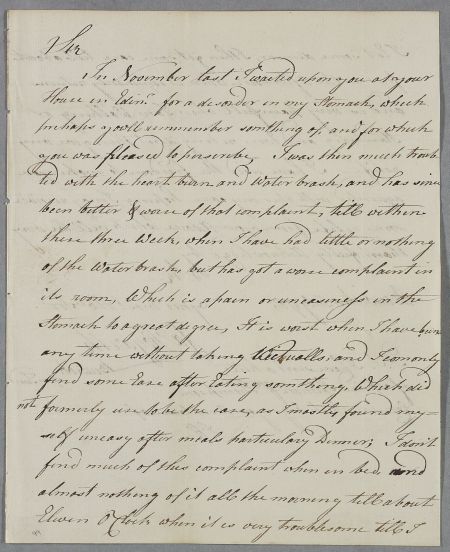 Sir
In November last I waited upon you at your
House in Edinr. for a disorder in my Stomach, which
perhaps you'll remmember somthing of, and for which
you was pleased to prescribe, I was then much troub-
led with the heart burn and Water brash, and has since
been better & worse of that complaint, till within
these three Week, when I have had little or nothing
of the Water brash, but has got a worse complaint in
its room, Which is a pain or uneasiness in the
Stomach to a great degree, It is worst when I have been
any time without taking Victualls; and I can only
find some Ease after Eating somthing, Which did
not formerly use to be the case, as I mostly found my=
self uneasy after meals particulary Dinner; I don't
find much of this complaint when in bed, and
almost nothing of it all the morning till about
Elven O'Clock when it is very troublesome till I